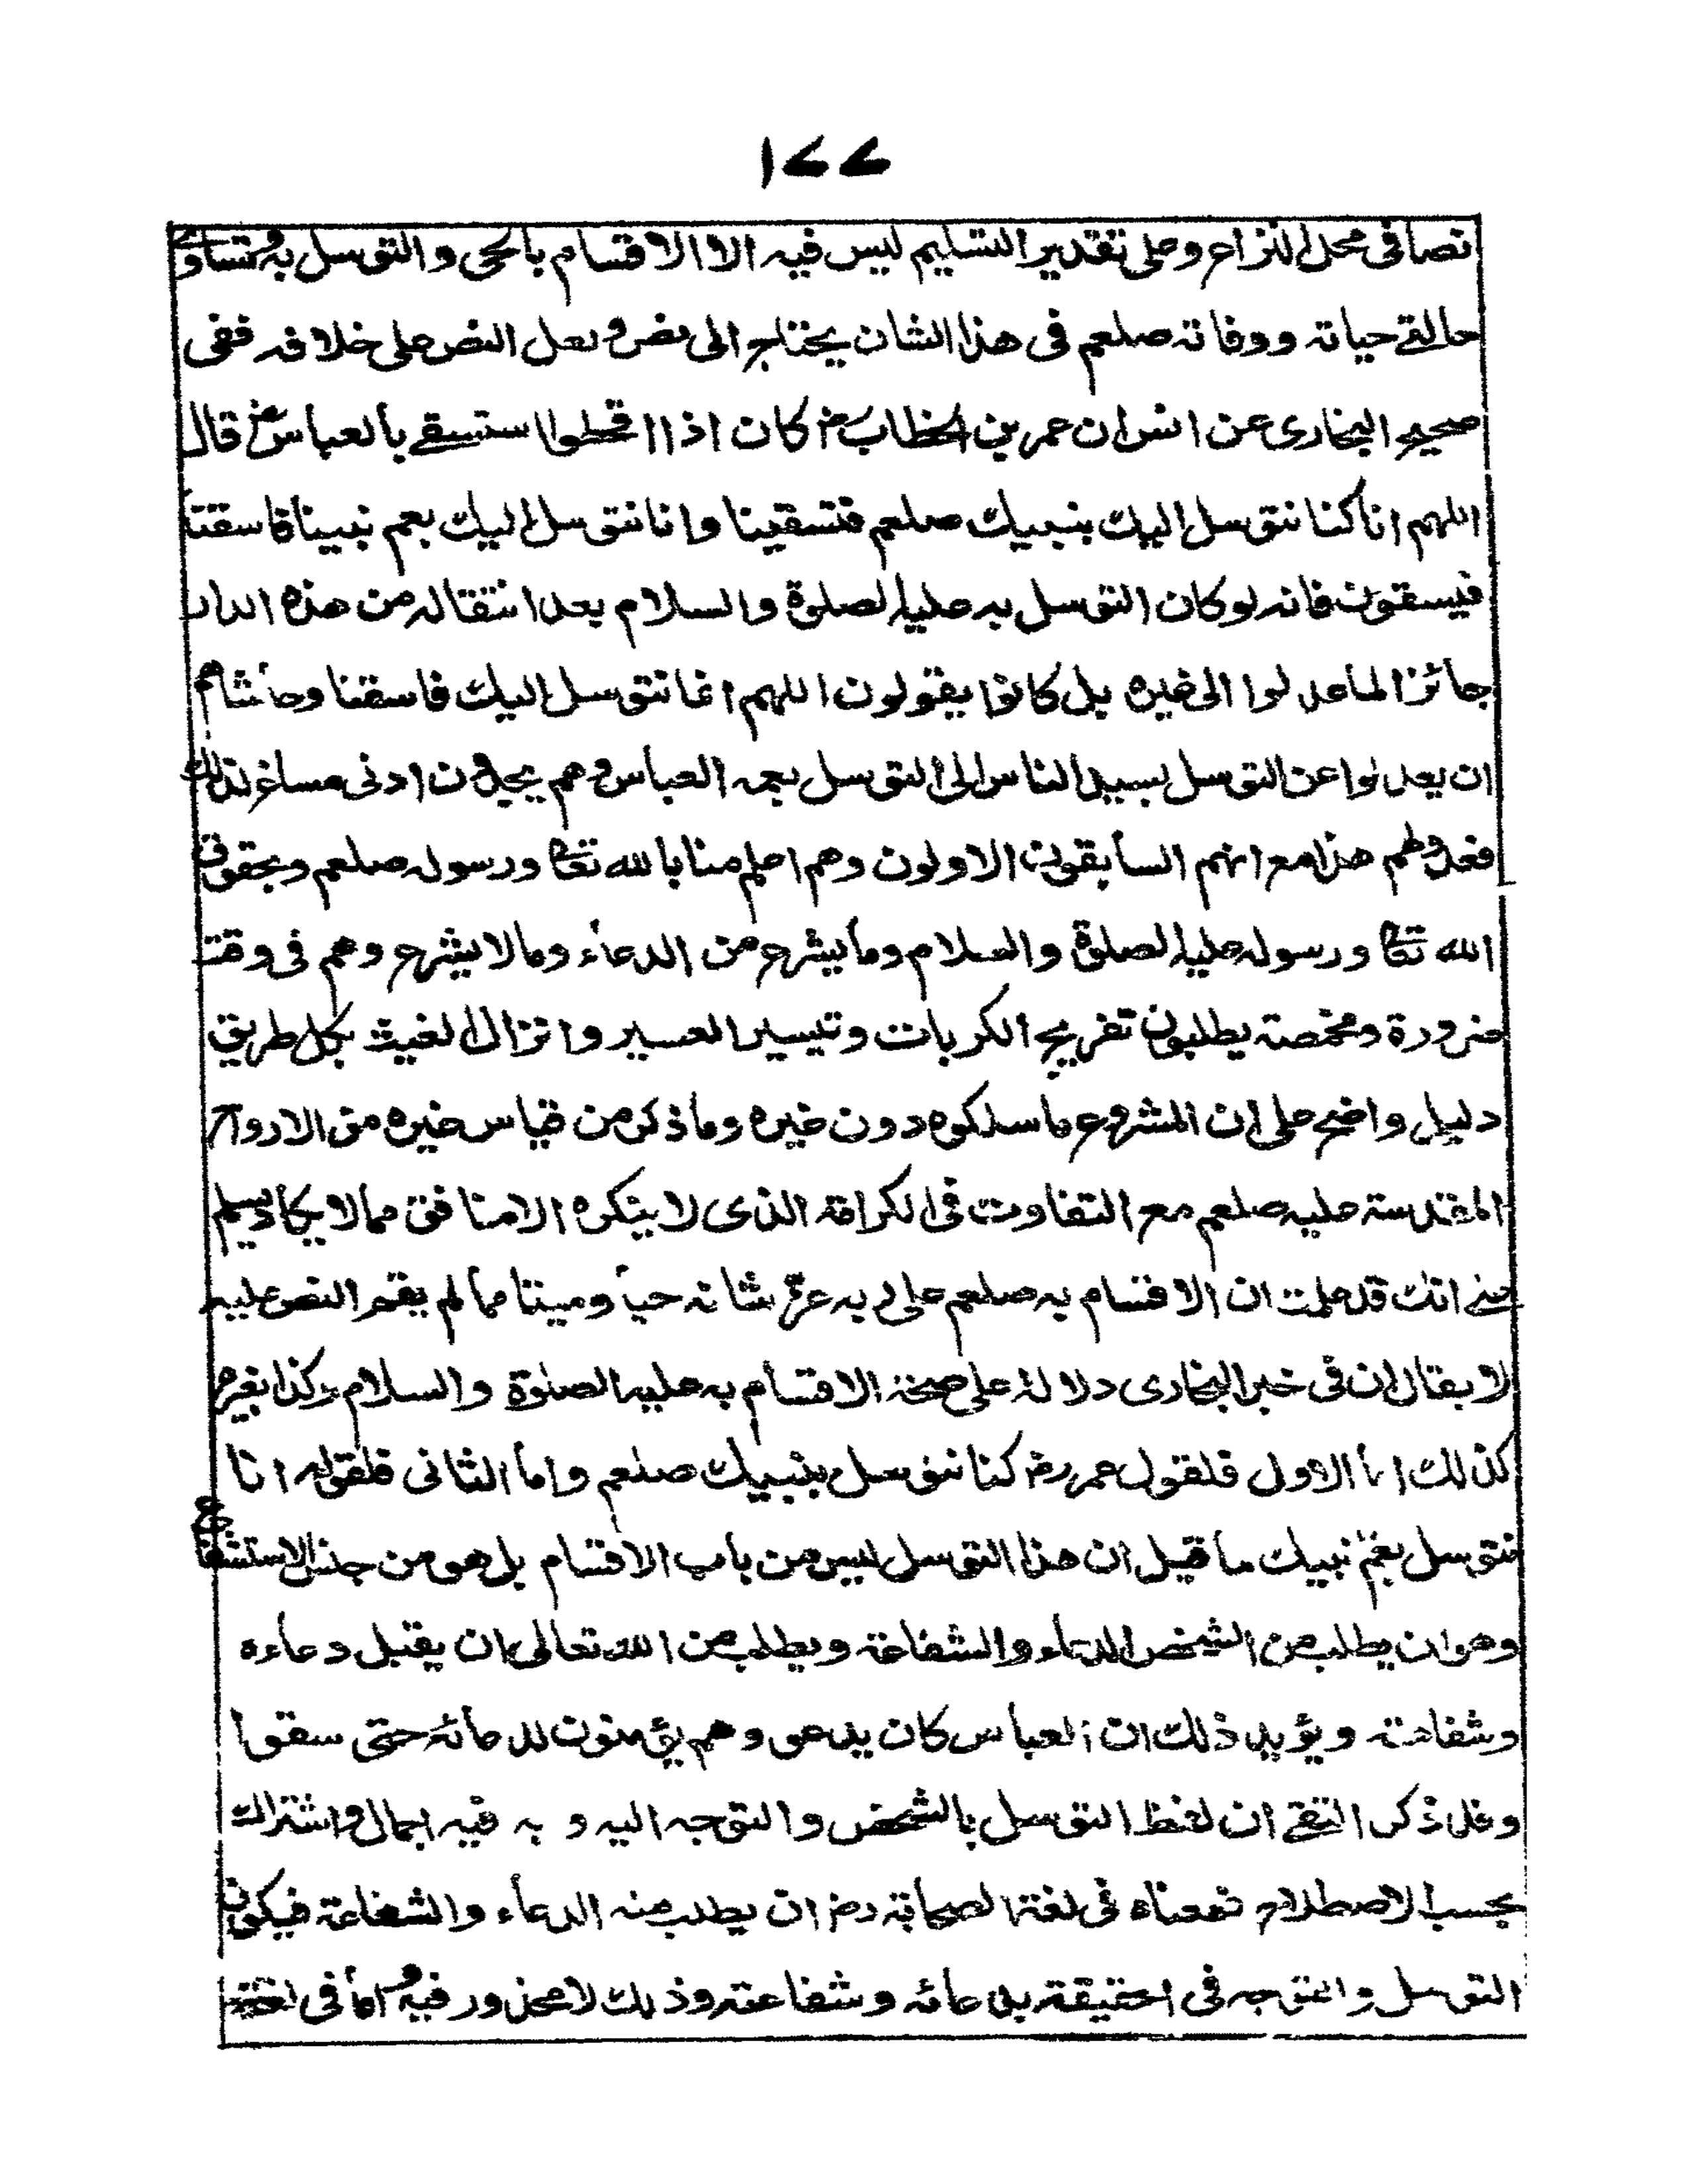 ١٧٧
نصا فی محل النزاع وعلی تقدیر التسلیم لیس فیه الا الاقسام بالحی والتوسل به وتساوی
حالتے حیاته ووفاته صلعم فی هذا الشان یحتاج الی نص ولعل النص علی خلافه ففی
صحیح البخاری عن انس ان عمر بن الخطابؓ کان اذا اقحطوا استسقے بالعباسؓ قال
اللهم انا کنا نتوسل الیك بنبیك صلعم فتسقینا وانا نتوسل الیك بعم نبینا فاسقنا
فیسقون فانه لوکان التوسل به علیه الصلوة والسلام بعد انتقاله من هذه الدار
جائزا لما عدلوا الی غیره بل کانوا یقولون اللهم انا نتوسل الیك فاسقنا وحاشاهم
ان یعدلوا عن التوسل بسید الناس الی التوسل بعمه العباس وهم یجدون ادنی مساغ لذلك
فعدولهم هذا مع انهم السابقون الاولون وهم اعلم منا بالله تعا ورسوله صلعم وبحقوق
الله تعا ورسوله علیه الصلوة والسلام وما یشرع من الدعاء وما لا یشرع وهم فی وقت
ضرورة ومخمصة یطلبون تفریج الکربات وتیسیر العسیر وانزال الغیث بکل طریق
دلیل واضح علی ان المشروع ما سلکوه دون غیره وما ذکر من قیاس غیره من الارواح
المقدسة علیه صلعم مع التفاوت فی الکرامة الذی لا ینکره الا منافق مما لا یکاد یسلم
علی انك قد علمت ان الاقسام به صلعم علی ربه عز شانه حیا ومیتا مما لم یقم النص علیه
لا یقال ان فی خبر البخاری دلالة علی صحة الاقسام به علیه الصلوة والسلام وکذا بغیره
کذلك اما الاول فلقول عمر رضـ کنا نتوسل بنبیك صلعم واما الثانی فلقوله انا
نتوسل بعم نبیك ما قیل ان هذا التوسل لیس من باب الاقسام بل هو من جنس الاستشفاع
وهو ان یطلب من الشخص الدعاء والشفاعة ویطلب من الله تعالی ان یقبل دعاءه
وشفاعته ویؤید ذلك ان العباس کان یدعو وهم یؤمنون لدعائه حتی سقوا
وقد ذکر التقے ان لفظ التوسل بالشخص والتوجه الیه و به فیه اجمال واشتراك
بحسب الاصطلاح فمعناه فی لغة الصحابة رضـ ان یطلب منه الدعاء والشفاعة فیکون
التوسل والتوجه فی الحقیقة بدعائه وشفاعته وذلك لا محذور فیه واما فی لغة